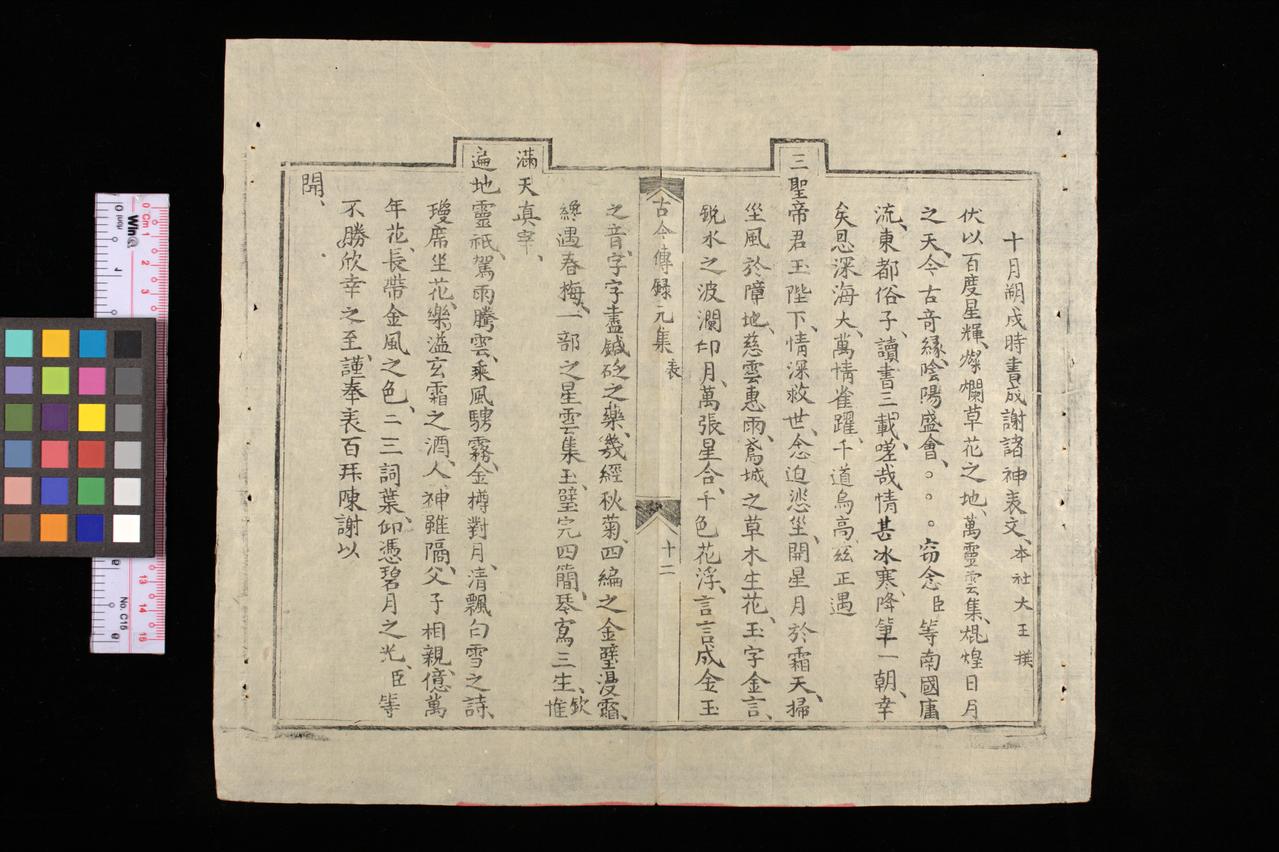 十月朔戌時書成謝諸神表文、本社大王撰
伏以百度星輝、燦爛草花之地、萬靈雲集、焜煌日月
之天、今古奇緣、陰陽盛會、。。。窃念臣等南國庸
流、東都俗子、讀書三載、嗟哉情甚冰寒、降筆一朝、幸
矣恩深海大、萬情雀躍、千道烏高、玆正遇
三聖帝君玉陛下、情深救世、念迫悲坐、開星月於霜天、掃
坐風於障地、慈雲惠雨、鳶城之草木生花、玉字金言、
銳水之波瀾印月、萬張星合、千色花浮、言言成金玉
古今傳錄元集 表 十二
之音、字字盡鍼砭之藥、幾經秋菊、四編之金璧漫霜、
纔遇春梅、一部之星雲集玉、璧完四簡、琴寫三生、欽惟
滿天真宰、
遍地靈祇、駕雨騰雲、乘風騁霧、金樽對月、清飄白雪之詩、
瓊席坐花、樂溢玄霜之酒、人神雖隔、父子相親、億萬
年花、長帶金風之色、二三詞葉、仰憑碧月之光、臣等
不勝欣幸之至、謹奉表百拜陳謝以
聞、
Wing
Cm
No. C15